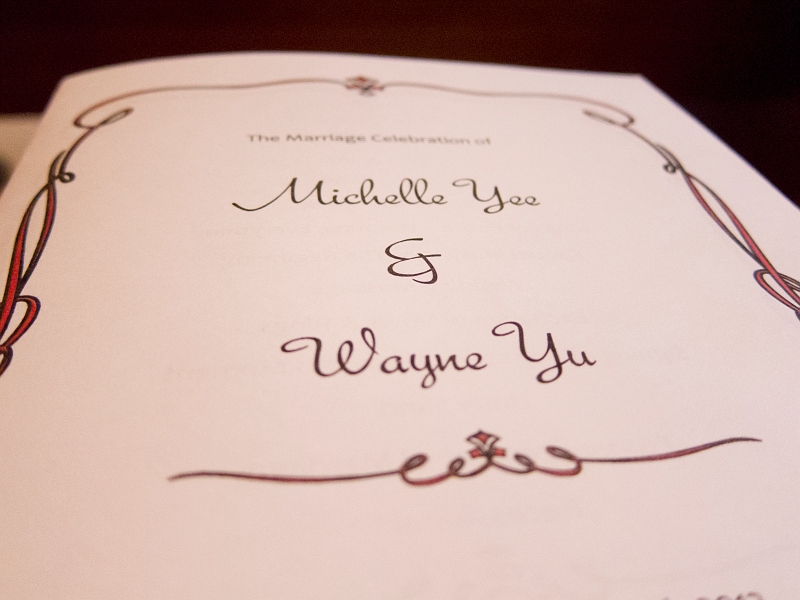 The Marriage Celebration of
Michelle Yee
&
Wayne Yu